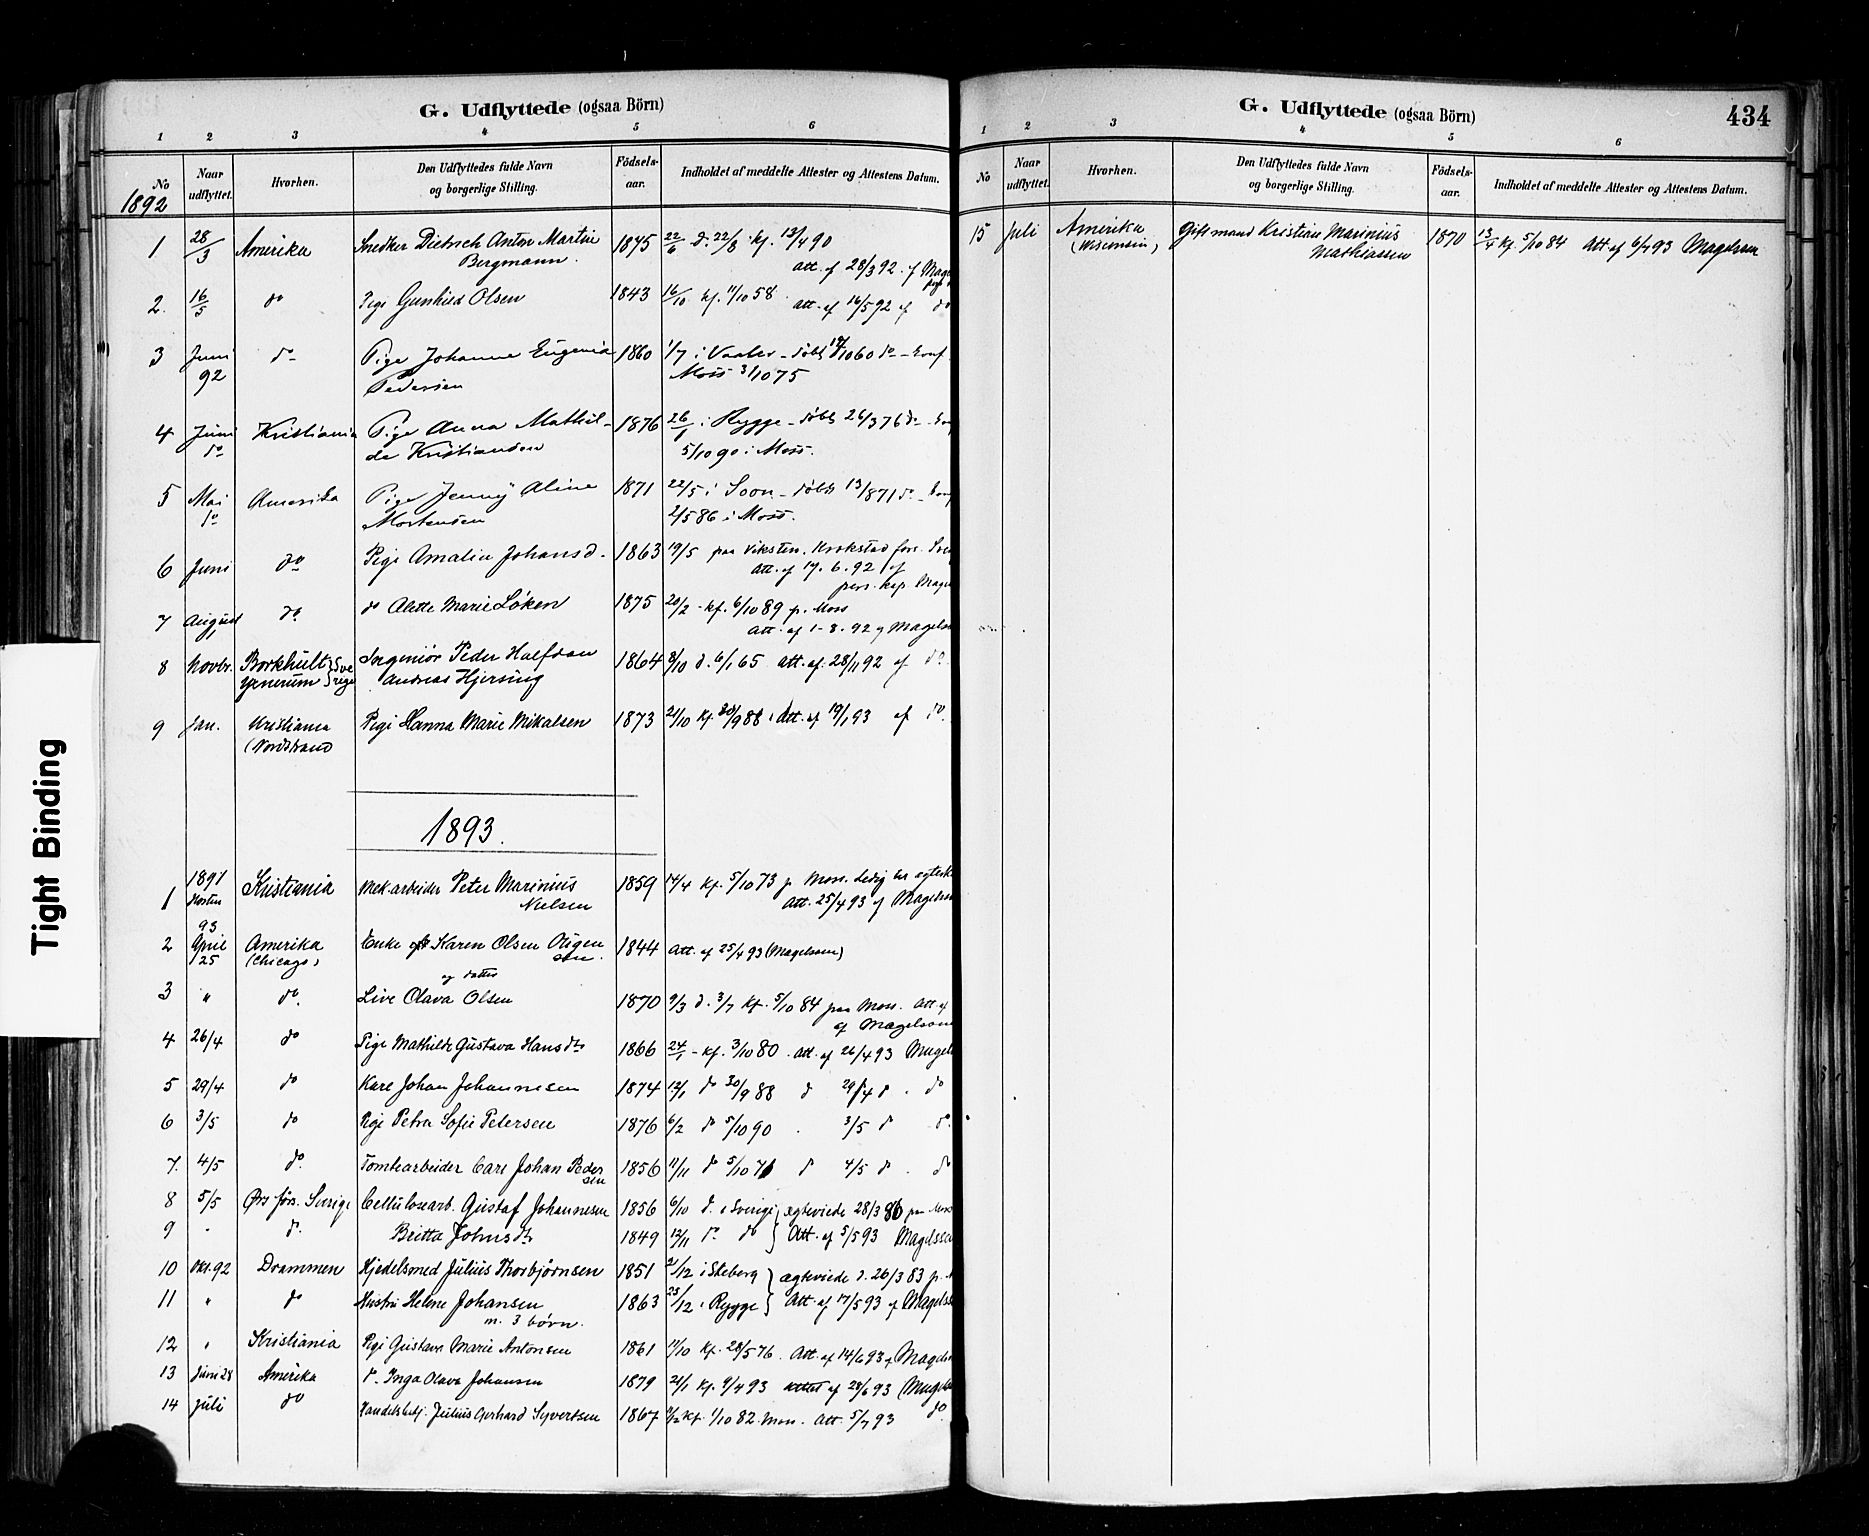 G. Udflyttede (ogsaa Börn)
1 2 3 4 5 6
No Naar udflyttet. Hvorhen. Den Udflyttedes fulde Navn og borgerlige Stilling. Födsels-aar. Indholdet af meddelte Attester og Attestens Datum.
1892
1 28/3 Amerika Snedker Dietrich Anton Martin 1845 22/6 d. 22/8 kf. 13/4 90
Bergmann. att. af 28/3 92. af
2. 16/5 do Pige Gunhild Olsen 1843 16/10 kf. 11/10 58 att. af 16/5 92 af do
3 Juni do Pige Johanne Eugenia 1860 1/7 i Vaaler - döbt 60 do - konf
92 Pedersen Moss 3/10 75
4 Juni Kristiania Pige Anna Mathil- 1876 26/1 i Rygge - döbt 26/3 76 do -
do de Kristiansen 5/10 90 i Moss.
5 Mai Amerika Pige Jenny Aline 1871 22/5 i Soon - döbt 13/8 71 do - konf
do Mortensen 2/5 86 i Moss.
6 Juni do Pige Amalie Johansd. 1863 19/5 paa Viksten. Krokstad
att. af 17. 6. 92 af
pers. kap. Mage
7 August do do Alette Marie Löken 1875 20/2 - kf. 6/10 89 p. Moss
att. af 1-8. 92 af Magels
8 Novbr. Borkhult Sve Ingeniör Peder Halfdan 1864 8/10 d. 6/1 65 att. af. 28/11 92 af do
Yxnerum rige Andreas Hjersing
9 Jan. Kristiania Pige Hanna Marie Mikalsen 1873 21/10 kf. 30/9 88. Att. af 19/1 93 af do.
(Nordstrand
1893.
1 1891 Kristiania Mek. arbeider Peter Marinius 1859 14/4 kf. 5/10 73 p. Moss. Ledig
Hösten Nielsen Att. 25/4 93 af Magelss
93
2 April Amerika Enke Karen Olsen 1844 Att. af 25/4 93 (Magelssen)
25 (Chicago)
og datter
3 " do. Live Olava Olsen 1870 9/3 d. 3/7 kf. 5/10 84 paa Moss. Att. af
af Magelssen
4 26/4 do Pige Mathilde Gustava Hansdtr 1866 24/1 - kf. 3/10 80. att. af 26/4 93 Magels
5 29/4 do Karl Johan Johannesen 1874 12/1 do 30/9 88 d 29/4 d. do
6 3/5 do Pige Petra Sofie Petersen 1876 6/2 do 5/10 90 . 3/5 d do
7. 4/5 do. Tomtearbeider Carl Johan Peder 1856 11/11 do 5/10 71 d 4/5 d. do
sen
8 5/5 Örs förs. Sverige Cellulosearb. Gustaf Johannesen 1856 6/10 d. i Sverige ægteviede 28/3 86 paa Moss
9 " do. Britta Johnsdtr 1849 12/11 do do Att. af 5/5 93 Magelssen
10 Okt. 92 Drammen Hjedelsmed Julius Thorbjörnsen 1851 2/12 i Skeberg ægteviede d. 26/3 83 p.
11 " do Hustru Helene Johansen 1863 23/12 i Rygge Att. af 17/5 93 af Magelss
m. 3 börn.
12 " Kristiania Pige Gustava Marie Antonsen 1861 17/10 kf. 28/5 76. Att. af 14/6 93 af Magels
13 Juni 28 Amerika do. Inga Olava Johansen 1879 21/1 kf. 9/4 93 af 28/6 93 Magels
14 Juli do Handelsbetj. Julius Gerhard Syvertsen 1867 kf. 1/10 82. Moss. Att. 5/7 93 do
G. Udflyttede (ogsaa Börn) 434
1 2 3 4 5 6
No Naar udflyttet. Hvorhen. Den Udflyttedes fulde Navn og borgerlige Stilling. Födsels-aar. Indholdet af meddelte Attester og Attestens Datum.
15 Juli Amerika Gift mand Kristian Marinius 1870 13/4 kf. 5/10 84 Att. af 6/7 93 Magelssen
(Wisconsin) Mathiassen
Tight Binding